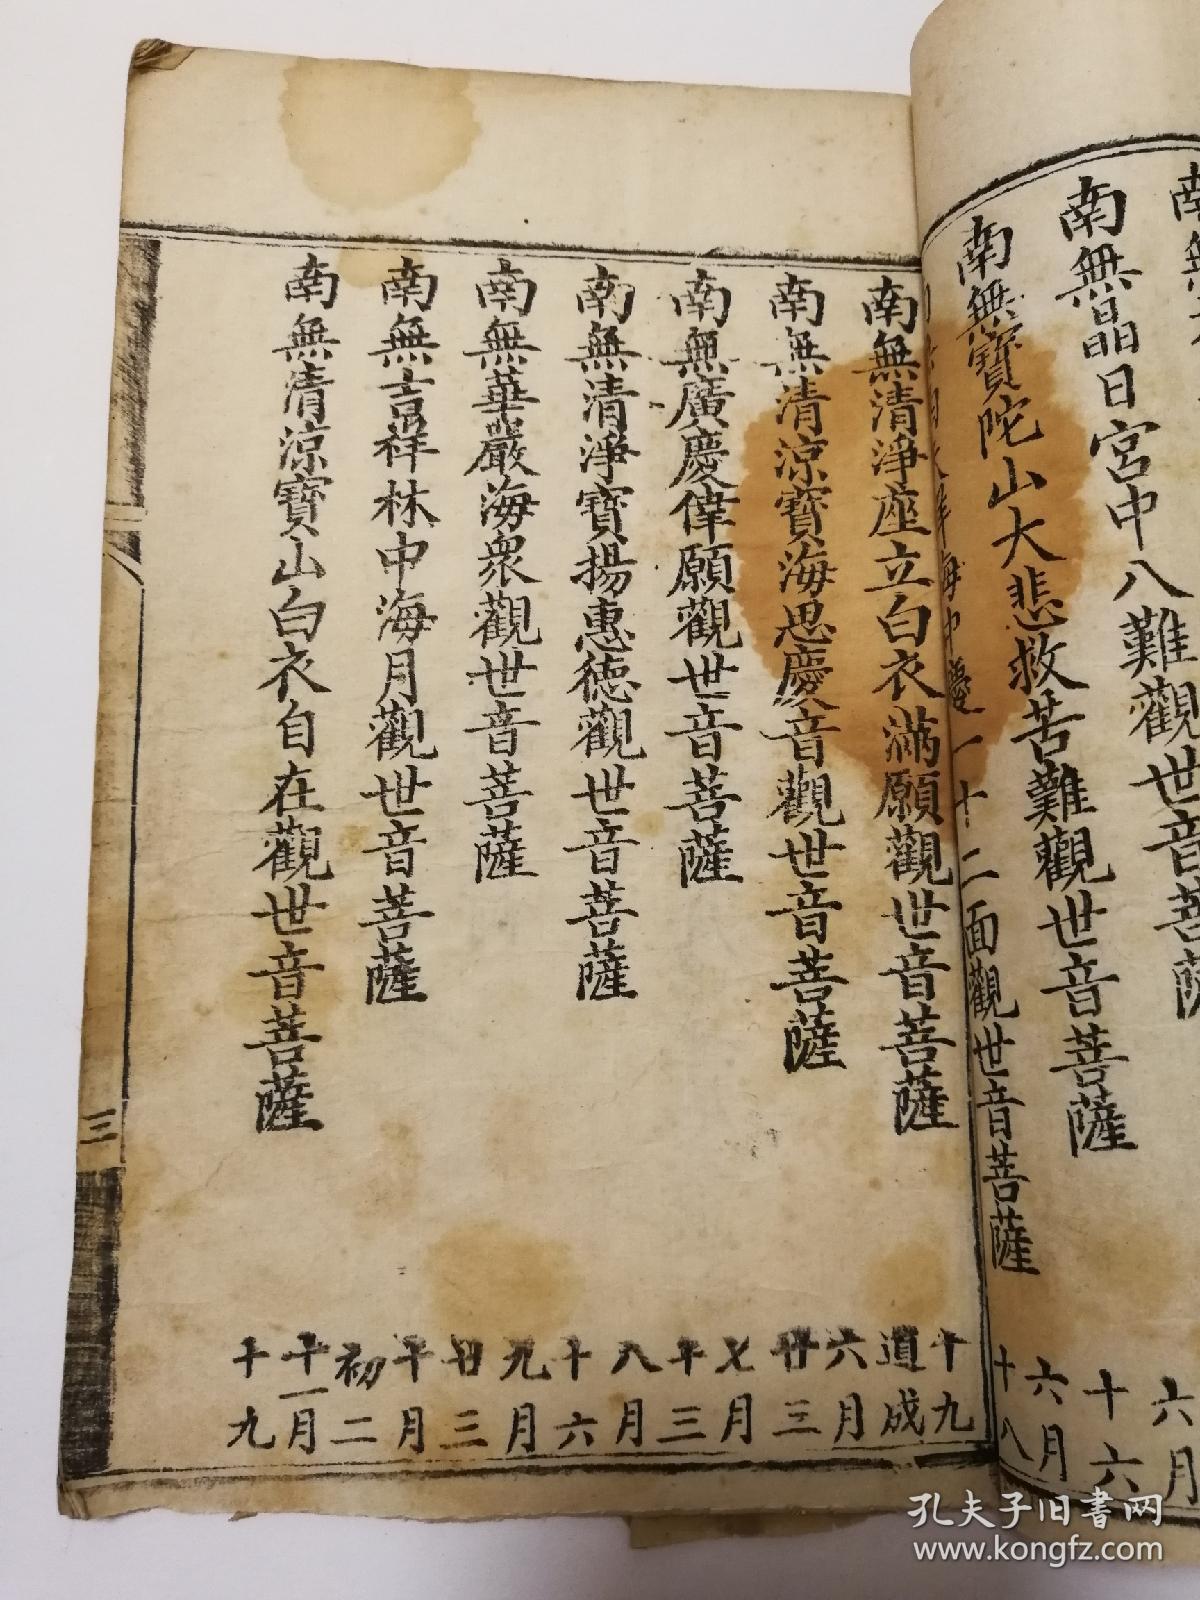 南無晶日宮中八難觀世音菩薩
六月
十六
南無寶陀山大悲救苦難觀世音菩薩
六月
十八
海中
一十二面觀世音菩薩
南無清淨座立白衣滿願觀世音菩薩
十九
道成
南無清涼寶海思慶音觀世音菩薩
六月
廿三
南無廣慶偉願觀世音菩薩
七月
十三
南無清淨寶揚惠德觀世音菩薩
八月
十六
南無華嚴海衆觀世音菩薩
九月
廿三
南無吉祥林中海月觀世音菩薩
十月
初二
南無清涼寶山白衣自在觀世音菩薩
十一月
十九
三
孔夫子旧书网
www.kongfz.com